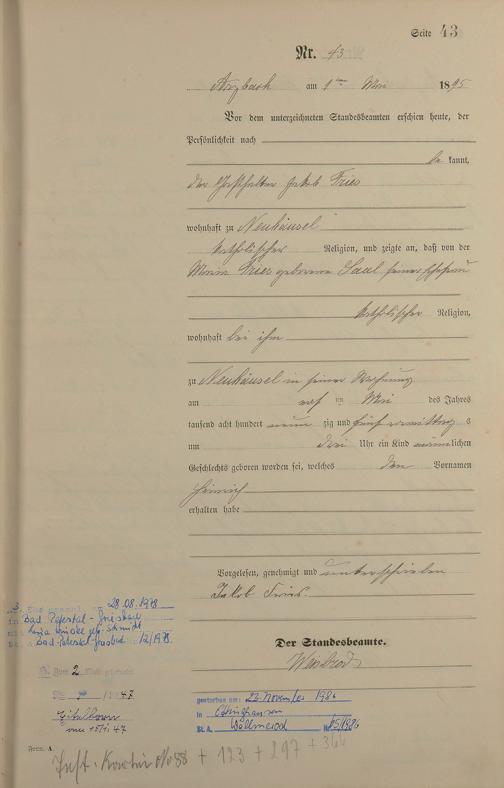 Seite 43
Nr. 43
Arzbach am 1ten Mai 1895
Vor dem unterzeichneten Standesbeamten erschien heute, der
Persönlichkeit nach
be kannt,
der Jakob Fries
wohnhaft zu Neuhäusel
katholischer Religion, und zeigte an, daß von der
Maria Fries geborene Saal seiner Ehefrau
katholischer Religion,
wohnhaft bei ihm
zu Neuhäusel in seiner Wohnung
am Mai des Jahres
tausend acht hundert neun zig und fünf Vormittag s
um drei Uhr ein Kind männlichen
Geschlechts geboren worden sei, welches den Vornamen
Heinrich
erhalten habe
Vorgelesen, genehmigt und unterschrieben
Jakob Fries
Der Standesbeamte.
3. 28.08.1978
in Bad Peterstal-Griesbach
mit geb. Schmidt
St. A. Bad Peterstal-Griesbach 12/1978.
Zum 2. Mal
/1947
Eitelborn
vom 47
gestorben am: 22. November 1986
in
St. A. Wallmerod Nr. 85/1986
Form. A.
No 88 + 123 + 297 + 366